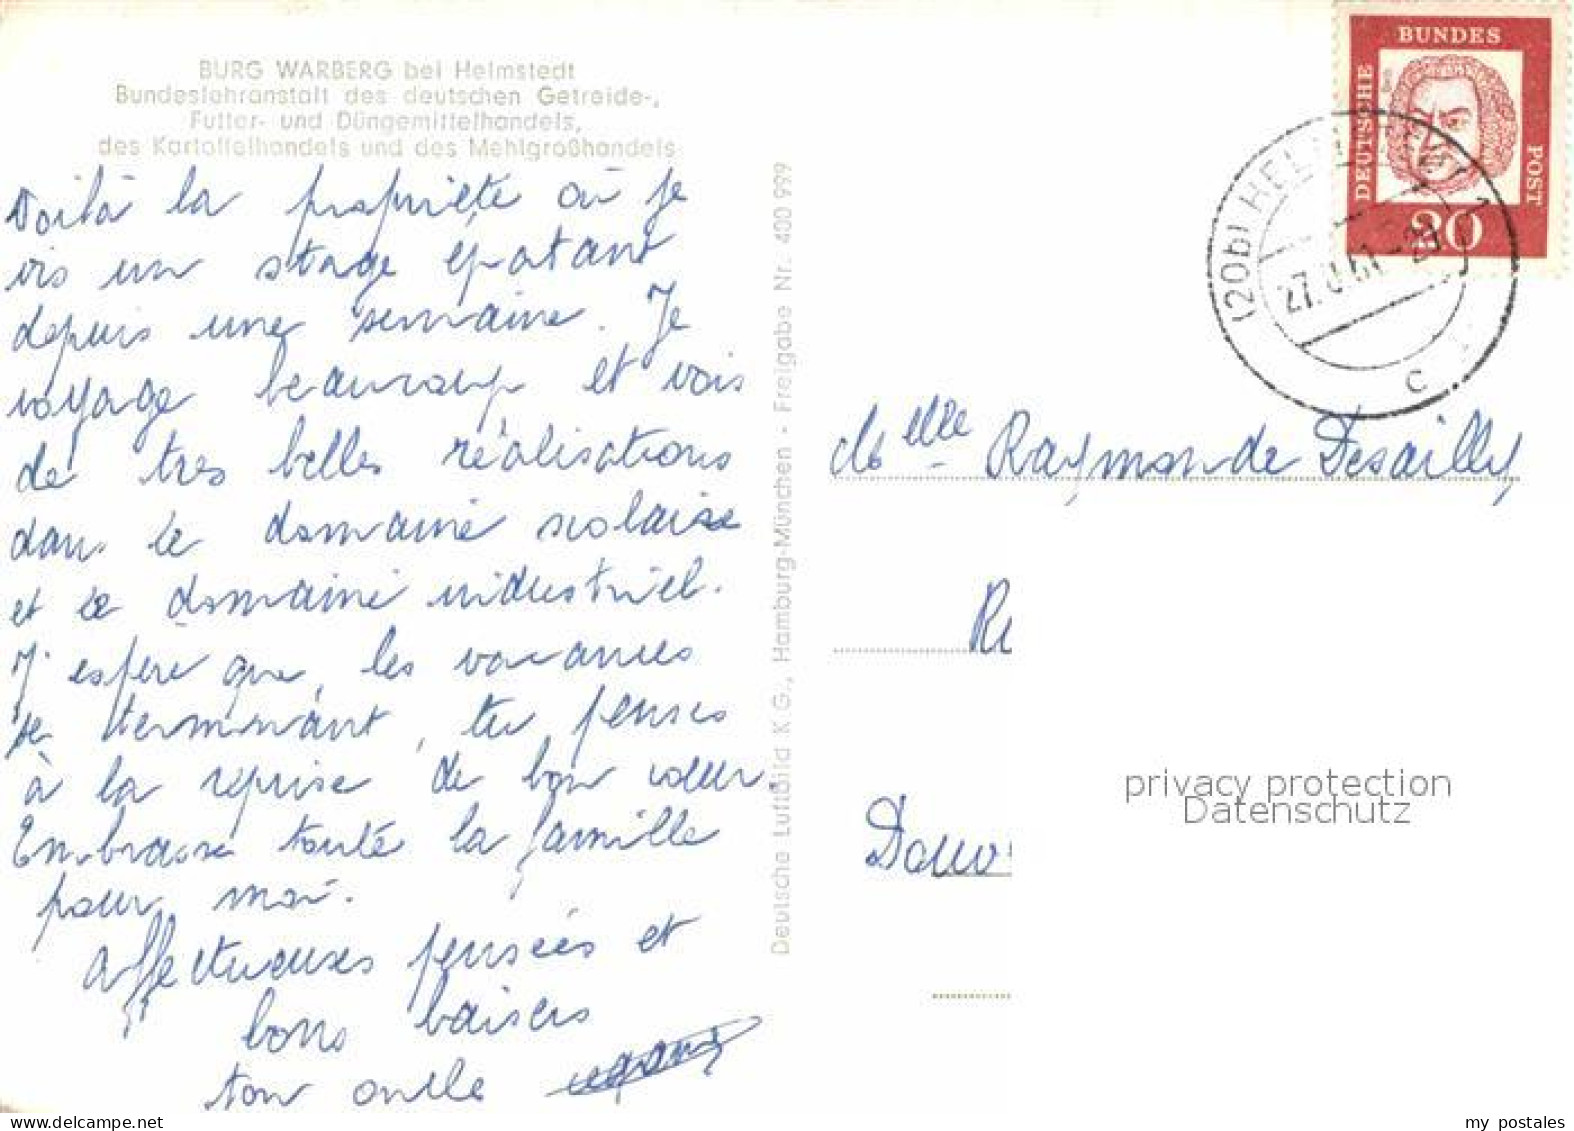 BURG WARBERG bei Helmstedt
Bundeslehranstalt des deutschen Getreide-,
Futter- und Düngemittelhandels,
des Kartoffelhandels und des Mehlgroßhandels
Voilà la propriété où je
vis un stage épatant
depuis une semaine. Je
voyage beaucoup et vois
de très belles réalisations
dans le domaine scolaire
et le domaine industriel.
J'espère que, les vacances
se terminant, tu penses
à la reprise de bon cœur.
Embrasse toute la famille
pour moi.
Affectueuses pensées et
bons baisers
ton oncle
Deutsche Luftbild K.G., Hamburg-München - Freigabe Nr. 400 999
DEUTSCHE BUNDES POST
20
(20b) HELMSTEDT 1
27. 61
c
Melle Raymonde Desailly
privacy protection
Datenschutz
my postales